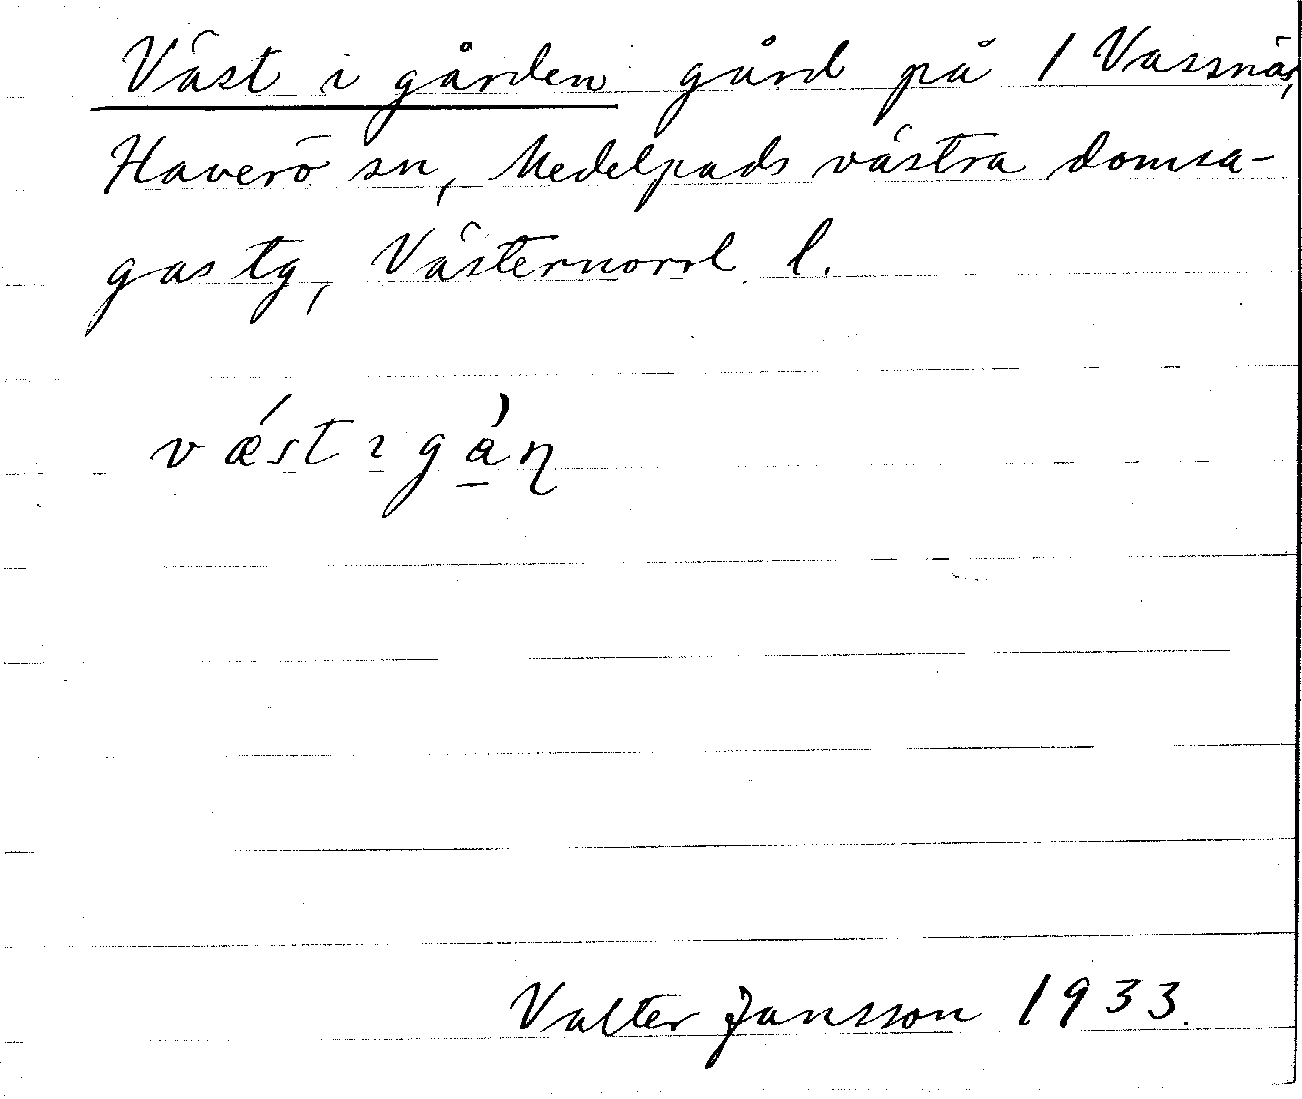 Väst i gården gård på 1 Vassnäs,
Haverö sn, Medelpads västra domsa-
gas tg, Västernorrl. l.
vǽst ɪ gå̀ɳ
Valter Jansson 1933.